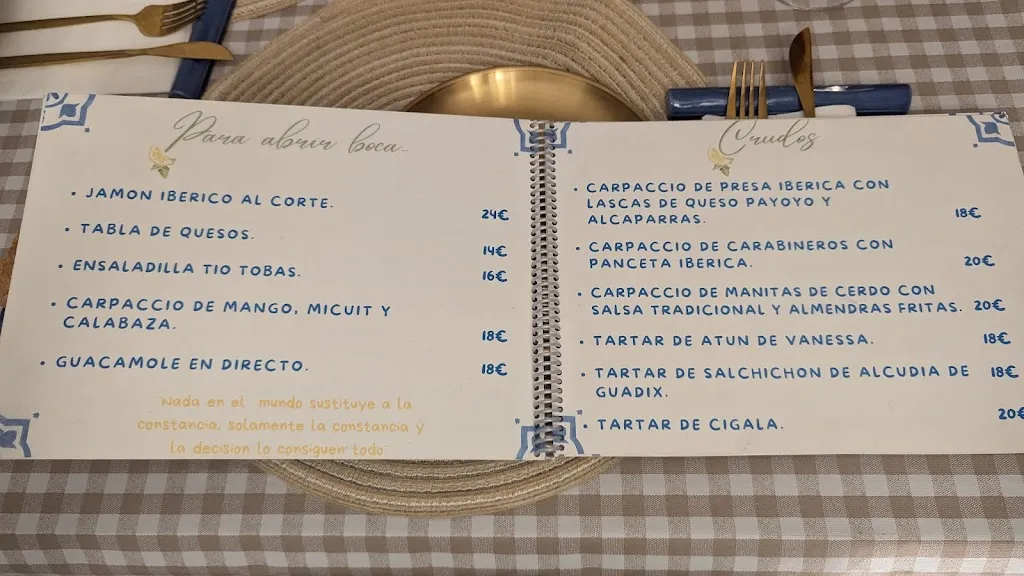 Para abrir boca
• JAMON IBERICO AL CORTE.
24€
• TABLA DE QUESOS.
14€
• ENSALADILLA TIO TOBAS.
16€
• CARPACCIO DE MANGO, MICUIT Y
CALABAZA.
18€
• GUACAMOLE EN DIRECTO.
18€
Nada en el mundo sustituye a la
constancia, solamente la constancia y
la decision lo consiguen todo
Crudos
• CARPACCIO DE PRESA IBERICA CON
LASCAS DE QUESO PAYOYO Y
ALCAPARRAS.
18€
• CARPACCIO DE CARABINEROS CON
PANCETA IBERICA.
20€
• CARPACCIO DE MANITAS DE CERDO CON
SALSA TRADICIONAL Y ALMENDRAS FRITAS. 20€
• TARTAR DE ATUN DE VANESSA. 18€
• TARTAR DE SALCHICHON DE ALCUDIA DE 18€
GUADIX.
• TARTAR DE CIGALA. 20€